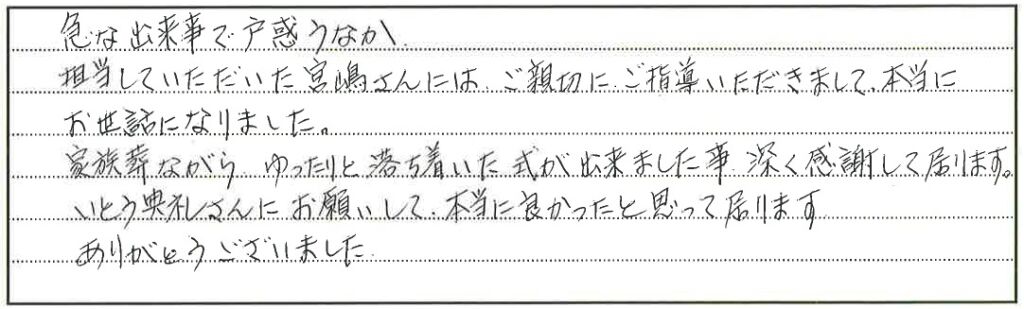 急な出来事で戸惑うなか、
担当していただいた宮嶋さんには、ご親切にご指導いただきまして、本当に
お世話になりました。
家族葬ながら、ゆったりと落ち着いた式が出来ました事、深く感謝して居ります。
いとう典礼さんにお願いして、本当に良かったと思って居ります
ありがとうございました